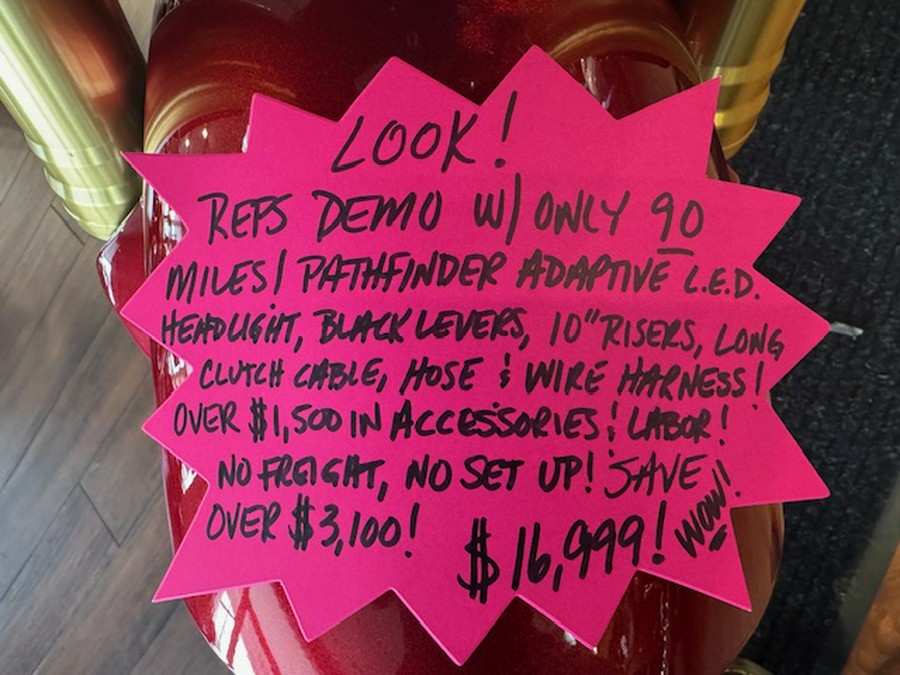 LOOK!
REPS DEMO W/ ONLY 90
MILES! PATHFINDER ADAPTIVE L.E.D.
HEADLIGHT, BLACK LEVERS, 10" RISERS, LONG
CLUTCH CABLE, HOSE & WIRE HARNESS!
OVER $1,500 IN ACCESSORIES & LABOR!
NO FREIGHT, NO SET UP! SAVE
OVER $3,100! $16,999! WOW!